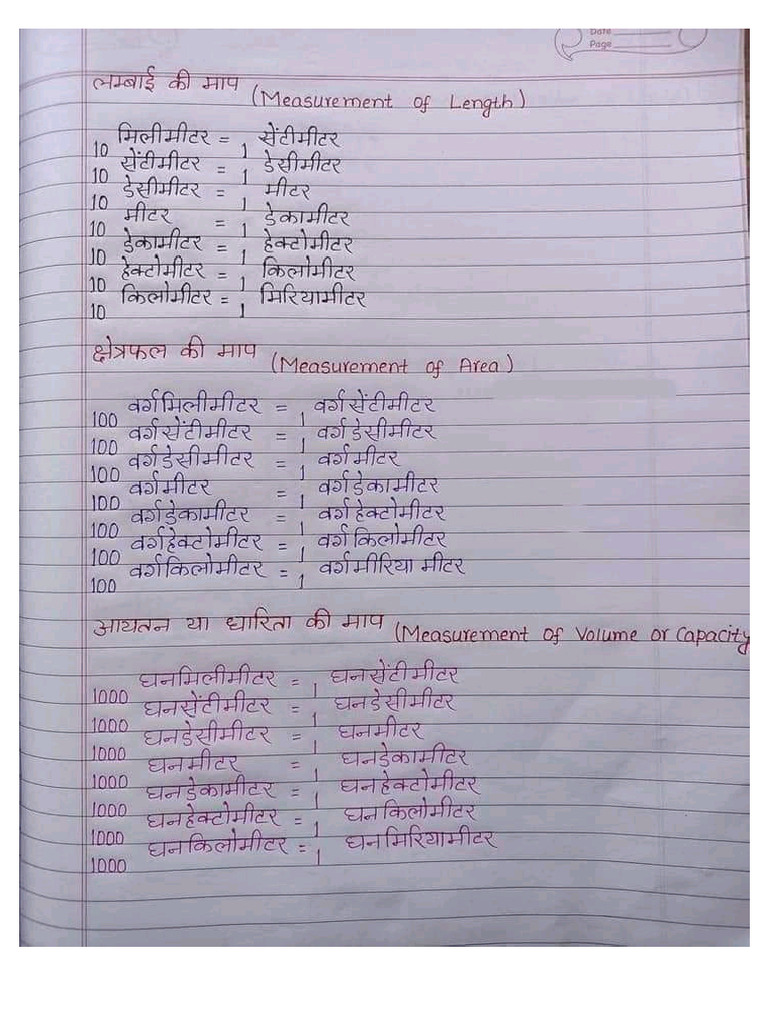 Date
Page
लम्बाई की माप (Measurement of Length)
10 मिलीमीटर = 1 सेंटीमीटर
10 सेंटीमीटर = 1 डेसीमीटर
10 डेसीमीटर = 1 मीटर
10 मीटर = 1 डेकामीटर
10 डेकामीटर = 1 हेक्टोमीटर
10 हेक्टोमीटर = 1 किलोमीटर
10 किलोमीटर = 1 मिरियामीटर
क्षेत्रफल की माप (Measurement of Area)
100 वर्ग मिलीमीटर = 1 वर्ग सेंटीमीटर
100 वर्ग सेंटीमीटर = 1 वर्ग डेसीमीटर
100 वर्ग डेसीमीटर = 1 वर्ग मीटर
100 वर्ग मीटर = 1 वर्ग डेकामीटर
100 वर्ग डेकामीटर = 1 वर्ग हेक्टोमीटर
100 वर्ग हेक्टोमीटर = 1 वर्ग किलोमीटर
100 वर्ग किलोमीटर = 1 वर्ग मीरिया मीटर
आयतन या धारिता की माप (Measurement of Volume or Capacity
1000 घन मिलीमीटर = 1 घन सेंटीमीटर
1000 घन सेंटीमीटर = 1 घन डेसीमीटर
1000 घन डेसीमीटर = 1 घन मीटर
1000 घन मीटर = 1 घन डेकामीटर
1000 घन डेकामीटर = 1 घन हेक्टोमीटर
1000 घन हेक्टोमीटर = 1 घन किलोमीटर
1000 घन किलोमीटर = 1 घन मिरियामीटर